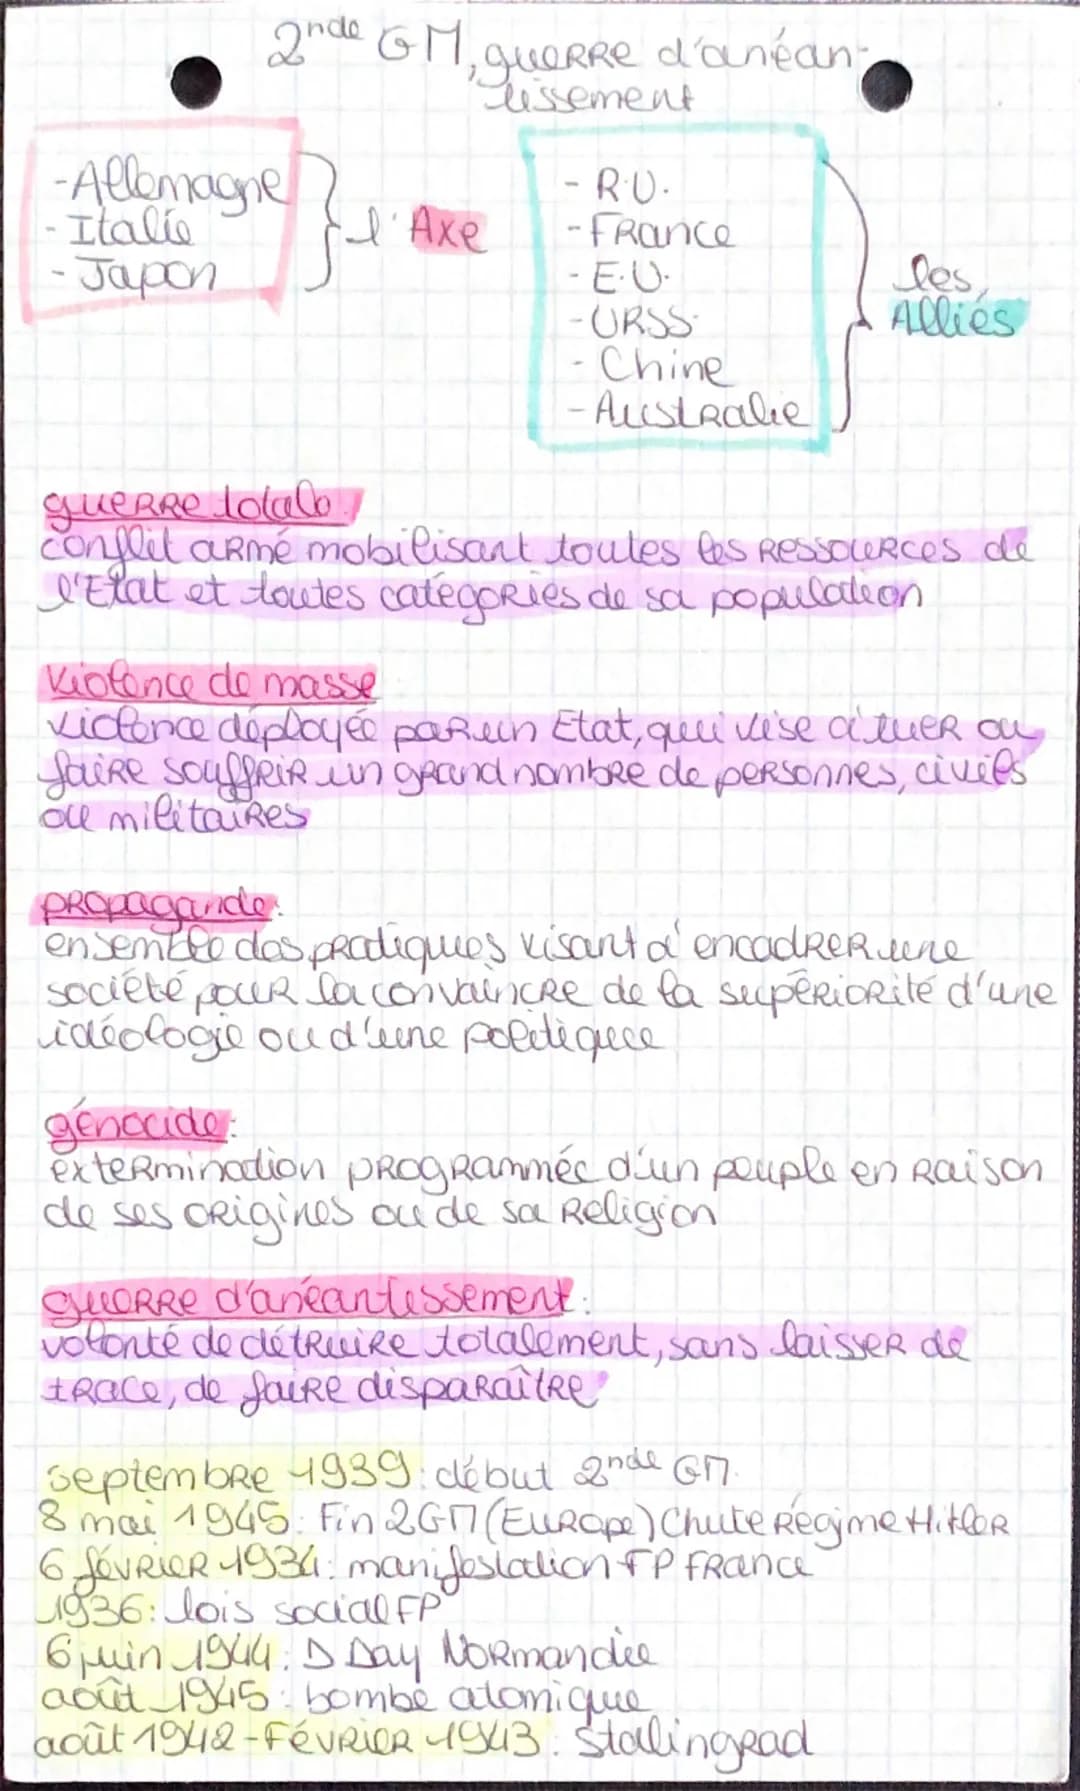 2nde GM, guerre d'anéan-
tissement
- Allemagne
- Italie
- Japon
l'Axe
- R.U.
- France
- E.U.
- URSS
- Chine
- Australie
les
Alliés
guerre totale:
conflit armé mobilisant toutes les ressources de
l'Etat et toutes catégories de sa population
Violence de masse
violence déployée par un Etat, qui vise à tuer ou
faire souffrir un grand nombre de personnes, civils
ou militaires
propagande:
ensemble des pratiques visant à encadrer une
société pour la convaincre de la supériorité d'une
idéologie ou d'une politique
génocide:
extermination programmée d'un peuple en raison
de ses origines ou de sa religion
guerre d'anéantissement:
volonté de détruire totalement, sans laisser de
trace, de faire disparaître
septembre 1939: début 2nde GM.
8 mai 1945: Fin 2GM (Europe) Chute Régime Hitler
6 février 1934: manifestation FP France
1936: lois social FP
6 juin 1944: D Day Normandie
août 1945: bombe atomique
août 1942-Février 1943: Stalingrad